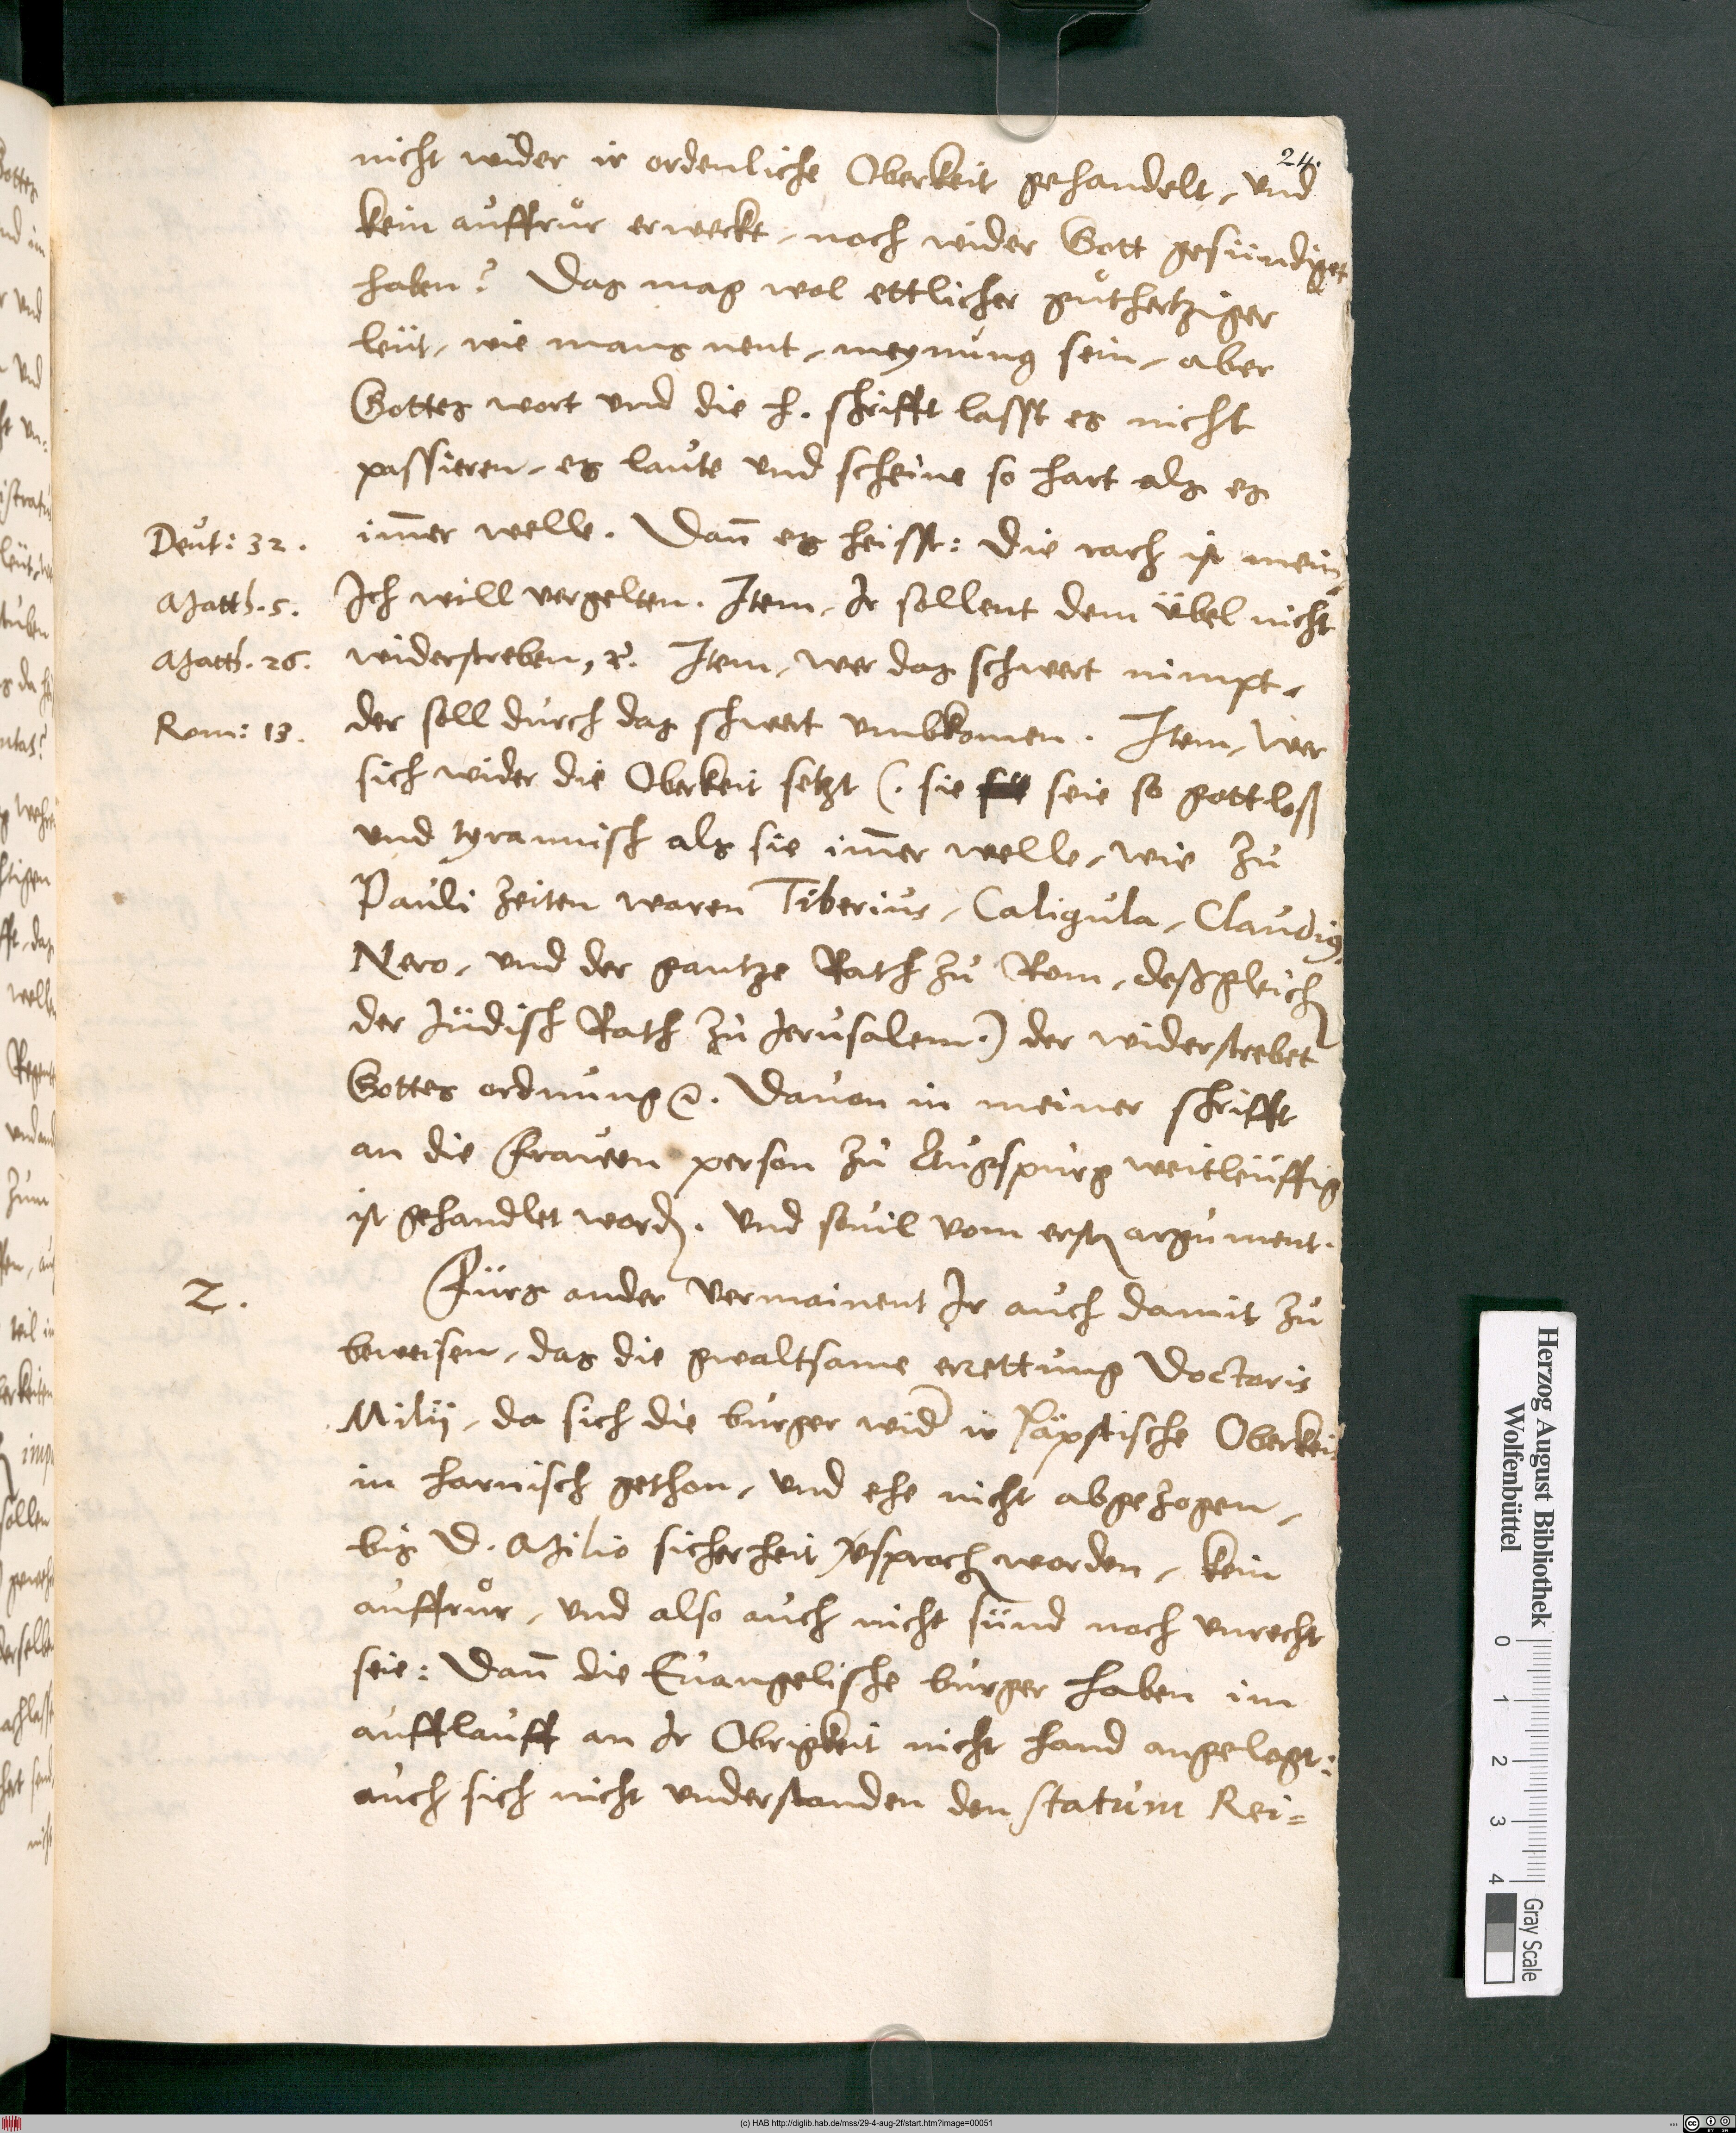 24.
nicht wider ir ordenliche Oberkeit gehandelt, vnd
kein auffrůr erweckt, noch wider Gott gesündiget
haben? Das mag wol ettlicher gůthertziger
leüt, wie mans nent, meynung sein, aber
Gottes wort vnd die h. schrifft lasst es nicht
passieren, es laute vnd scheine so hart als es
Deut: 32. im̄er welle. Dan̄ es heisst: Die rach ist mein,
Matth. 5. Ich will vergelten. Item, Ir sollent dem übel nicht
Matth. 26. widerstreben, ꝛc. Item, wer das schwert nimpt,
Rom: 13. der soll durch das schwert vmbkomen. Item, Wer
sich wider die Oberkeit setzt (. sie seie so gottloß
vnd tyrannisch als sie im̄er welle, wie zu
Pauli zeiten waren Tiberius, Caligula, Claudius
Nero, vnd der gantze Rath zu Rom, deßgleichen
der Jüdisch Rath zu Jerusalem.) der widerstrebet
Gottes ordnung ꝛc. Dauon in meiner schrifft
an die Frauen person zu Augspurg weitleüffig
ist gehandlet worden. Vnd souil vom ersten argument.
2. Fürs ander vermainent Ir auch damit zu
beweisen, das die gwaltsame errettung Doctoris
Milij, da sich die burger wider ir Päpstische Oberkeit
in harnisch gethon, vnd ehe nicht abgezogen,
bis D. Milio sicherheit versprochen worden, kein
auffrůr, vnd also auch nicht sünd noch vnrecht
seie: Dan̄ die Euangelische burger haben im
aufflauff an Ir Obrigkeit nicht hand angelegt:
auch sich nicht vnderstanden den statum Rei=
Herzog August Bibliothek
Wolfenbüttel
0 1 2 3 4
Gray Scale
(c) HAB http://diglib.hab.de/mss/29-4-aug-2f/start.htm?image=00051